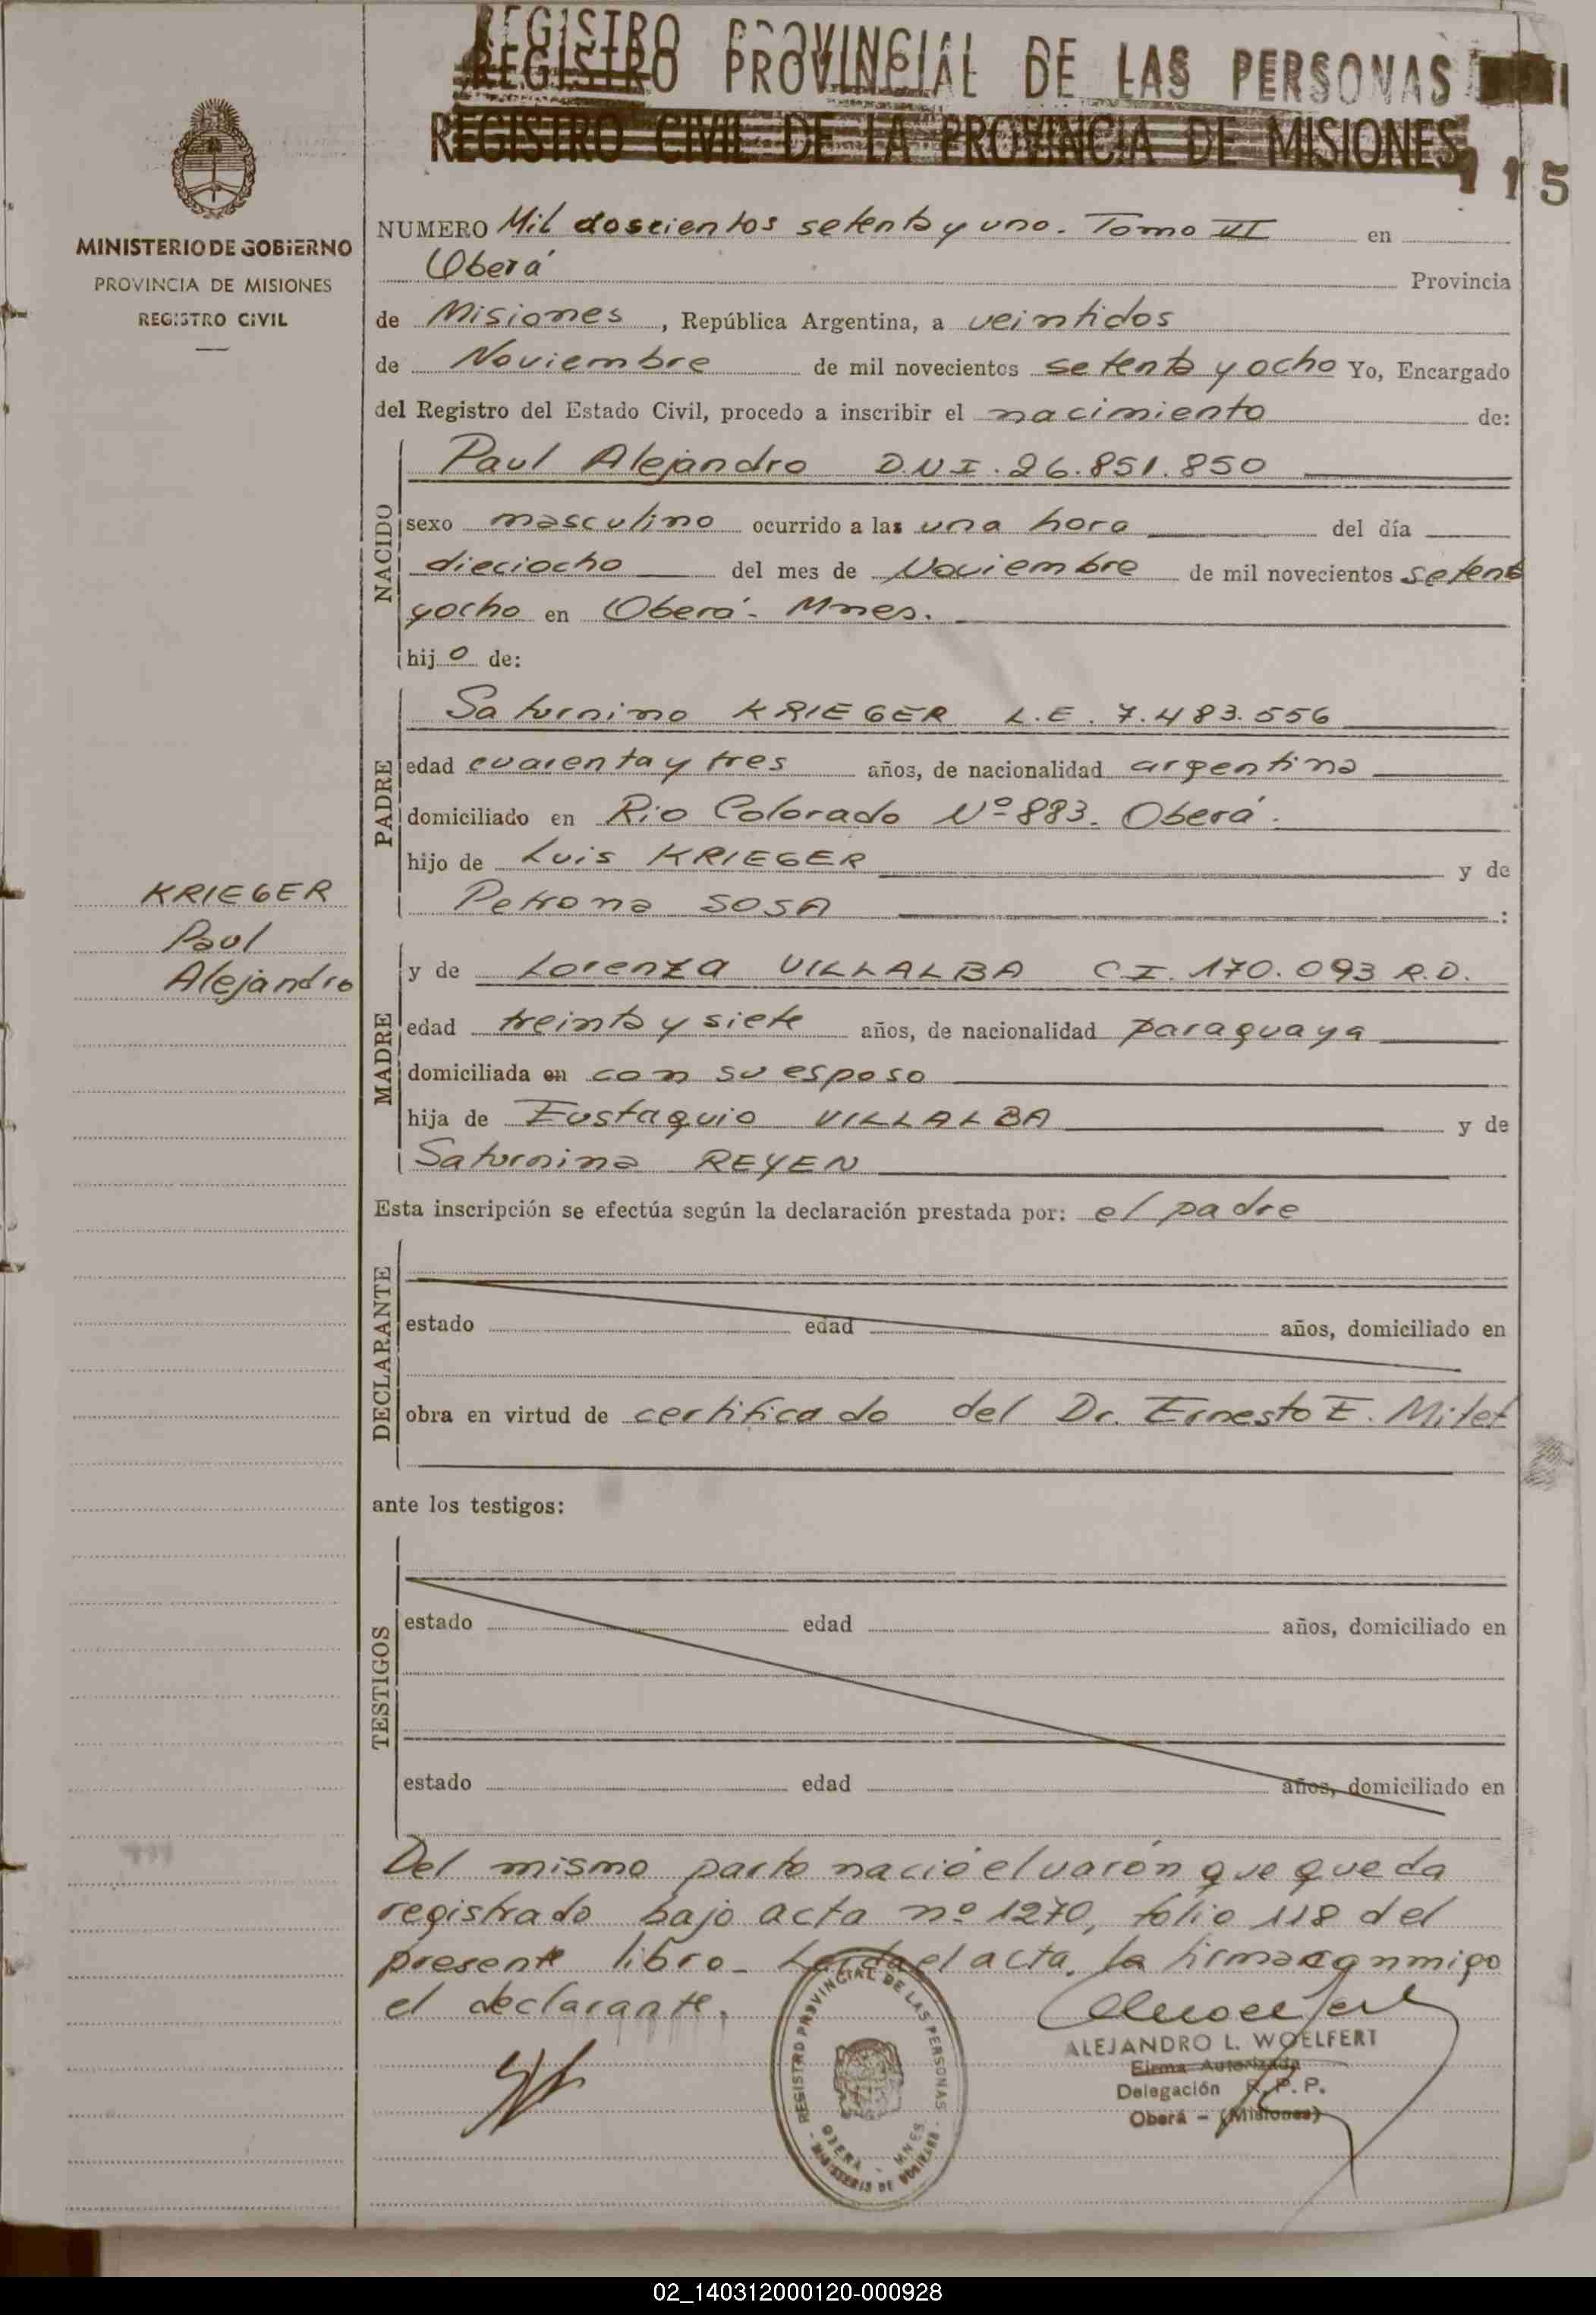 REGISTRO PROVINCIAL DE LAS PERSONAS
REGISTRO CIVIL DE LA PROVINCIA DE MISIONES
115
MINISTERIO DE GOBIERNO
PROVINCIA DE MISIONES
REGISTRO CIVIL
NUMERO Mil doscientos setenta y uno. Tomo III en
Oberá Provincia
de Misiones, República Argentina, a veintidos
de Noviembre de mil novecientos setenta y ocho Yo, Encargado
del Registro del Estado Civil, procedo a inscribir el nacimiento de:
NACIDO
Paul Alejandro D.N.I. 26.851.850
sexo masculino ocurrido a las una hora del día
dieciocho del mes de Noviembre de mil novecientos setenta
y ocho en Oberá - Mnes.
hijo de:
PADRE
Saturnino KRIEGER L.E. 7.483.556
edad cuarenta y tres años, de nacionalidad argentina
domiciliado en Rio Colorado Nº 883. Oberá.
hijo de Luis KRIEGER y de
Petrona SOSA :
KRIEGER
Paul
Alejandro
MADRE
y de Lorenza VILLALBA C.I. 170.093 R.D.
edad treinta y siete años, de nacionalidad paraguaya
domiciliada en con su esposo
hija de Eustaquio VILLALBA y de
Saturnina REYEN
Esta inscripción se efectúa según la declaración prestada por: el padre
DECLARANTE
estado edad años, domiciliado en
obra en virtud de certificado del Dr. Ernesto E. Milet
ante los testigos:
TESTIGOS
estado edad años, domiciliado en
estado edad años, domiciliado en
Del mismo parto nació el varón que queda
registrado bajo acta nº 1270, folio 118 del
presente libro. Leida el acta, la firma conmigo
el declarante.
REGISTRO PROVINCIAL DE LAS PERSONAS
OBERA - MNES.
MINISTERIO DE GOBIERNO
ALEJANDRO L. WOELFERT
Firma Autorizada
Delegación R. P. P.
Oberá - (Misiones)
02_140312000120-000928